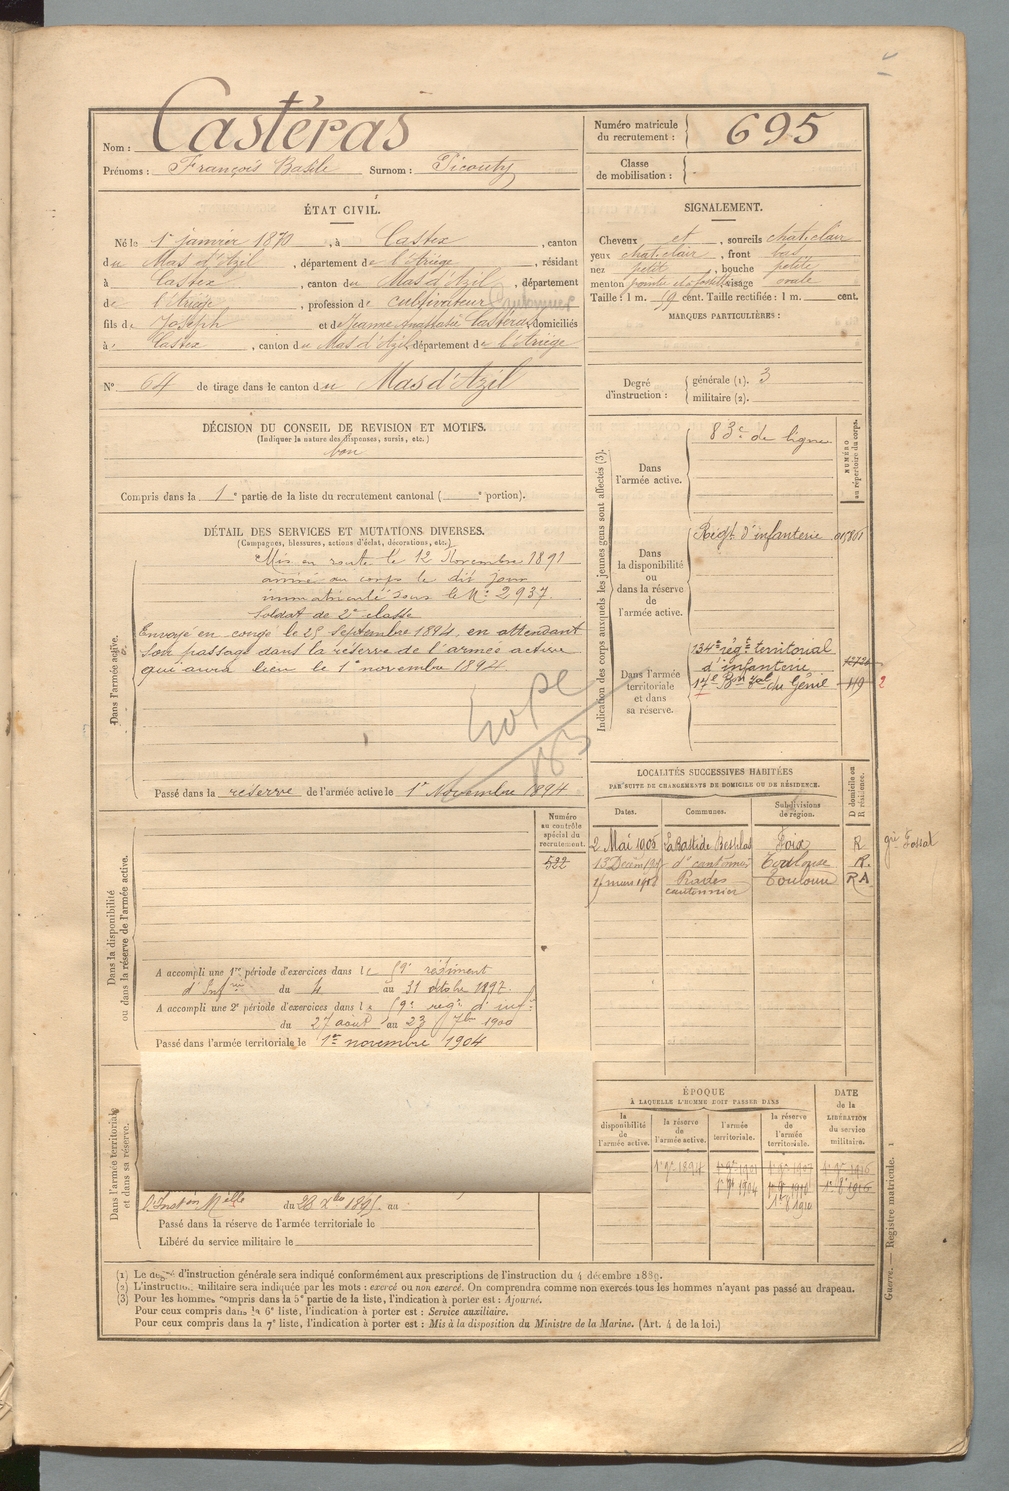 Nom : Castéras
Prénoms : François Basile Surnom : Picouty
Numéro matricule du recrutement : 695
Classe de mobilisation :
ÉTAT CIVIL.
Né le 1er janvier 1870, à Castex, canton
du Mas d'Azil, département de l'Ariège, résidant
à Castex, canton du Mas d'Azil, département
de l'Ariège, profession de cultivateur
fils de Joseph et de Jeanne Anasthasie Castéras, domiciliés
à Castex, canton du Mas d'Azil, département de l'Ariège
N° 64 de tirage dans le canton du Mas d'Azil
SIGNALEMENT.
Cheveux et, sourcils chat. clair
yeux chat. clair, front bas
nez petit, bouche petite
menton visage ovale
Taille : 1 m. 59 cent. Taille rectifiée : 1 m. cent.
MARQUES PARTICULIÈRES :
Degré d'instruction :
générale (1). 3
militaire (2).
DÉCISION DU CONSEIL DE REVISION ET MOTIFS.
(Indiquer la nature des dispenses, sursis, etc.)
bon
Compris dans la 1e partie de la liste du recrutement cantonal ( e portion).
DÉTAIL DES SERVICES ET MUTATIONS DIVERSES.
(Campagnes, blessures, actions d'éclat, décorations, etc.)
Dans l'armée active.
Mis en route le 12 Novembre 1891
arrivé au corps le dit jour
immatriculé sous le N° 2937.
Soldat de 2e classe
Envoyé en congé le 25 Septembre 1894, en attendant
son passage dans la réserve de l'armée active
qui aura lieu le 1er novembre 1894.
Passé dans la réserve de l'armée active le 1er Novembre 1894
Indication des corps auxquels les jeunes gens sont affectés (3).
NUMÉRO au répertoire du corps.
Dans l'armée active.
83e de ligne
Dans la disponibilité ou dans la réserve de l'armée active.
Régt d'infanterie
Dans l'armée territoriale et dans sa réserve.
134e régt territorial
d'infanterie
17e Bon du Génie 119 2
LOCALITÉS SUCCESSIVES HABITÉES
PAR SUITE DE CHANGEMENTS DE DOMICILE OU DE RÉSIDENCE.
Dates. Communes. Subdivisions de région. D domicile ou R résidence.
2 Mai 1906 La Bastide Besplas Foix R
Toulouse R.
cantonnier Toulouse R A
Numéro au contrôle spécial du recrutement.
522
Dans la disponibilité ou dans la réserve de l'armée active.
A accompli une 1re période d'exercices dans le 59e régiment
d'Infrie du 4 au 31 octobre 1897.
A accompli une 2e période d'exercices dans le 59e régt d'inf.
du 27 août au 23 7bre 1900
Passé dans l'armée territoriale le 1er novembre 1904
Dans l'armée territoriale et dans sa réserve.
du 23 Xbre 1895 au
Passé dans la réserve de l'armée territoriale le
Libéré du service militaire le
ÉPOQUE
À LAQUELLE L'HOMME DOIT PASSER DANS
la disponibilité de l'armée active.
la réserve de l'armée active.
l'armée territoriale.
la réserve de l'armée territoriale.
DATE de la LIBÉRATION du service militaire.
1er 9bre 1894
(1) Le degré d'instruction générale sera indiqué conformément aux prescriptions de l'instruction du 4 décembre 1889.
(2) L'instruction militaire sera indiquée par les mots : exercé ou non exercé. On comprendra comme non exercés tous les hommes n'ayant pas passé au drapeau.
(3) Pour les hommes compris dans la 5e partie de la liste, l'indication à porter est : Ajourné.
Pour ceux compris dans la 6e liste, l'indication à porter est : Service auxiliaire.
Pour ceux compris dans la 7e liste, l'indication à porter est : Mis à la disposition du Ministre de la Marine. (Art. 4 de la loi.)
Guerre. — Registre matricule. 1